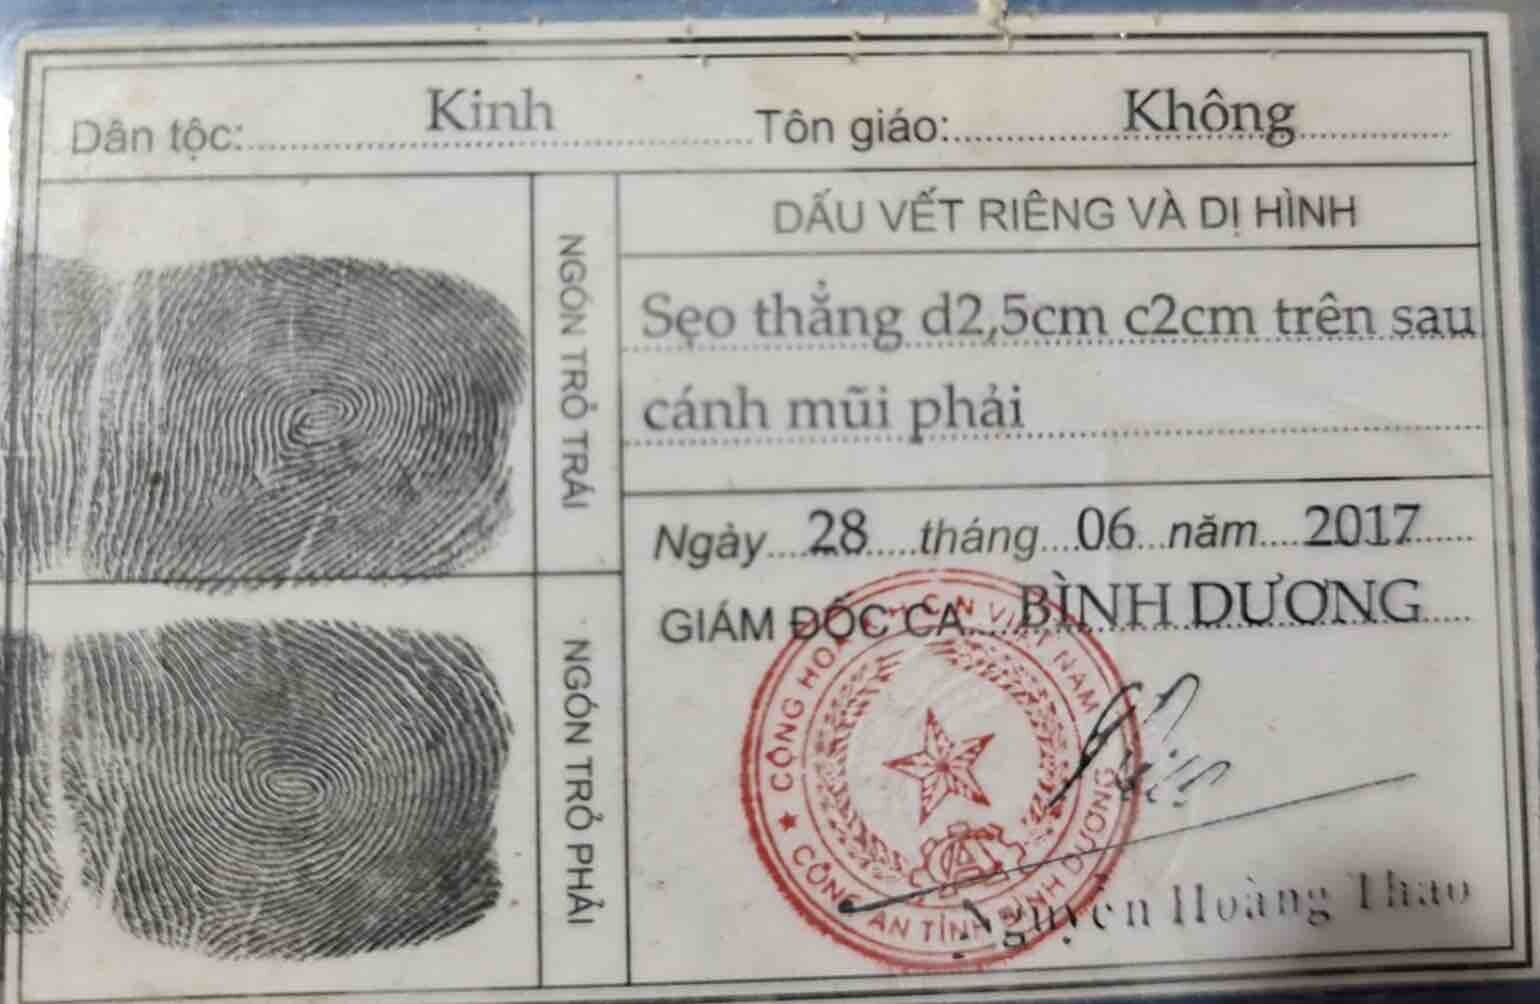 Dân tộc: Kinh Tôn giáo: Không
NGÓN TRỎ TRÁI
NGÓN TRỎ PHẢI
DẤU VẾT RIÊNG VÀ DỊ HÌNH
Sẹo thẳng d2,5cm c2cm trên sau
cánh mũi phải
Ngày 28 tháng 06 năm 2017
GIÁM ĐỐC CA BÌNH DƯƠNG
CỘNG HOÀ X.H.C.N VIỆT NAM
CÔNG AN TỈNH BÌNH DƯƠNG
Nguyễn Hoàng Thao